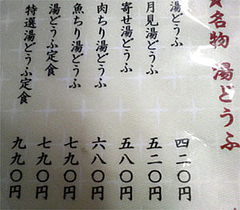 名物 湯どうふ
湯どうふ 四二〇円
月見湯どうふ 五二〇円
寄せ湯どうふ 五八〇円
肉ちり湯どうふ 六八〇円
魚ちり湯どうふ 七九〇円
湯どうふ定食 七九〇円
特選湯どうふ定食 九九〇円